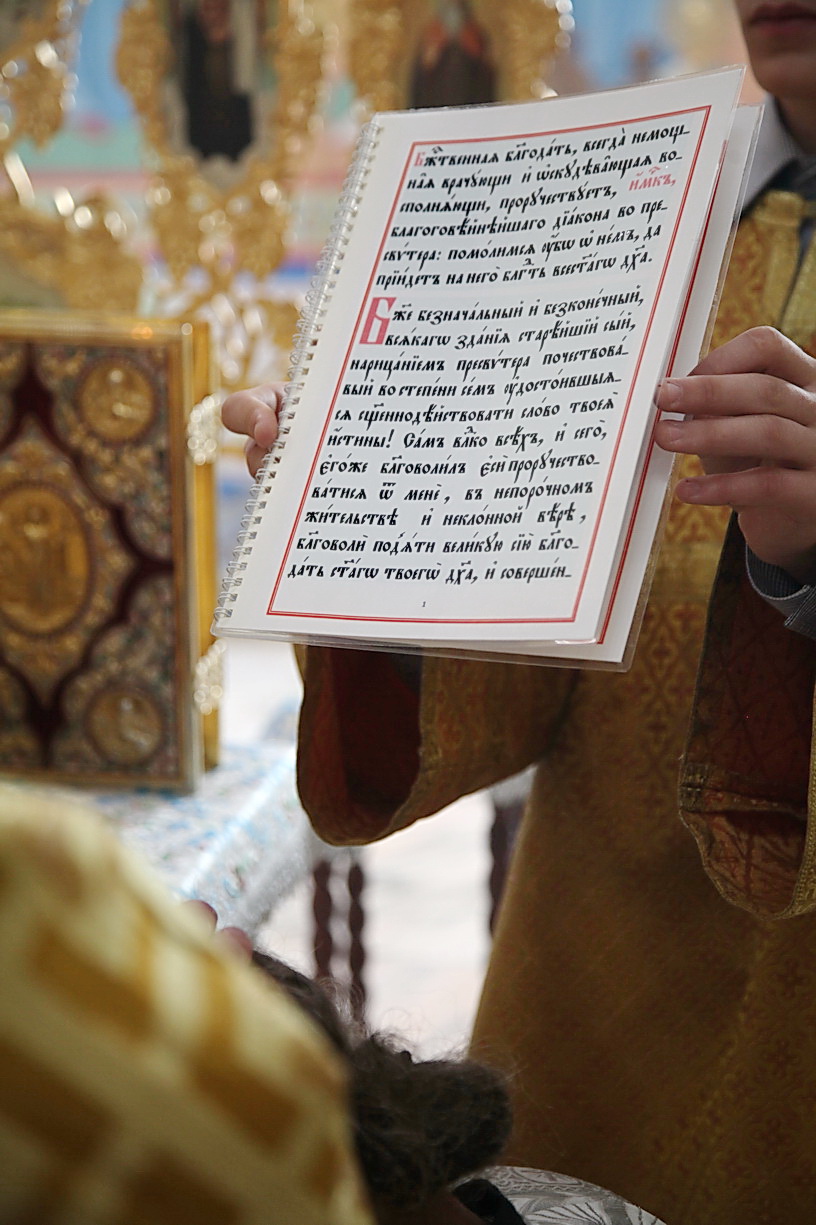 Бж҃твеннаѧ бл҃года́ть, всегда̀ немощ-
на̑ѧ врачꙋ́ющи и҆ ѡ҆скꙋдѣва́ющаѧ во-
сполнѧ́ющи, прорꙋ́чествꙋетъ, и҆́мк҃ъ,
благоговѣ́йнѣйшаго дїа́кона во пре-
сви́тера: помо́лимсѧ ᲂу҆́бѡ ѡ҆ не́мъ, да
прїи́детъ на него̀ бл҃гⷣть всест҃а́гѡ дх҃а.
Бж҃е безнача́льный и҆ безконе́чный,
всѧ́кагѡ зда́нїѧ старѣ́йшїй сы́й,
нарица́нїемъ пресви́тера почествова́-
вый во сте́пени се́мъ ᲂу҆досто́ившыѧ-
сѧ сщ҃еннодѣ́йствовати сло́во твоеѧ̀
и҆́стины! Са́мъ влⷣко всѣ́хъ, и҆ сего̀,
є҆го́же бл҃говоли́лъ є҆сѝ прорꙋ́чество-
ва́тисѧ ѿ менє̀, въ непоро́чномъ
жи́тельствѣ и҆ некло́нной вѣ́рѣ,
бл҃говолѝ под̾ѧ́ти вели́кꙋю сїю̀ бл҃го-
да́ть ст҃а́гѡ твоегѡ̀ дх҃а, и҆ соверше́н-
1